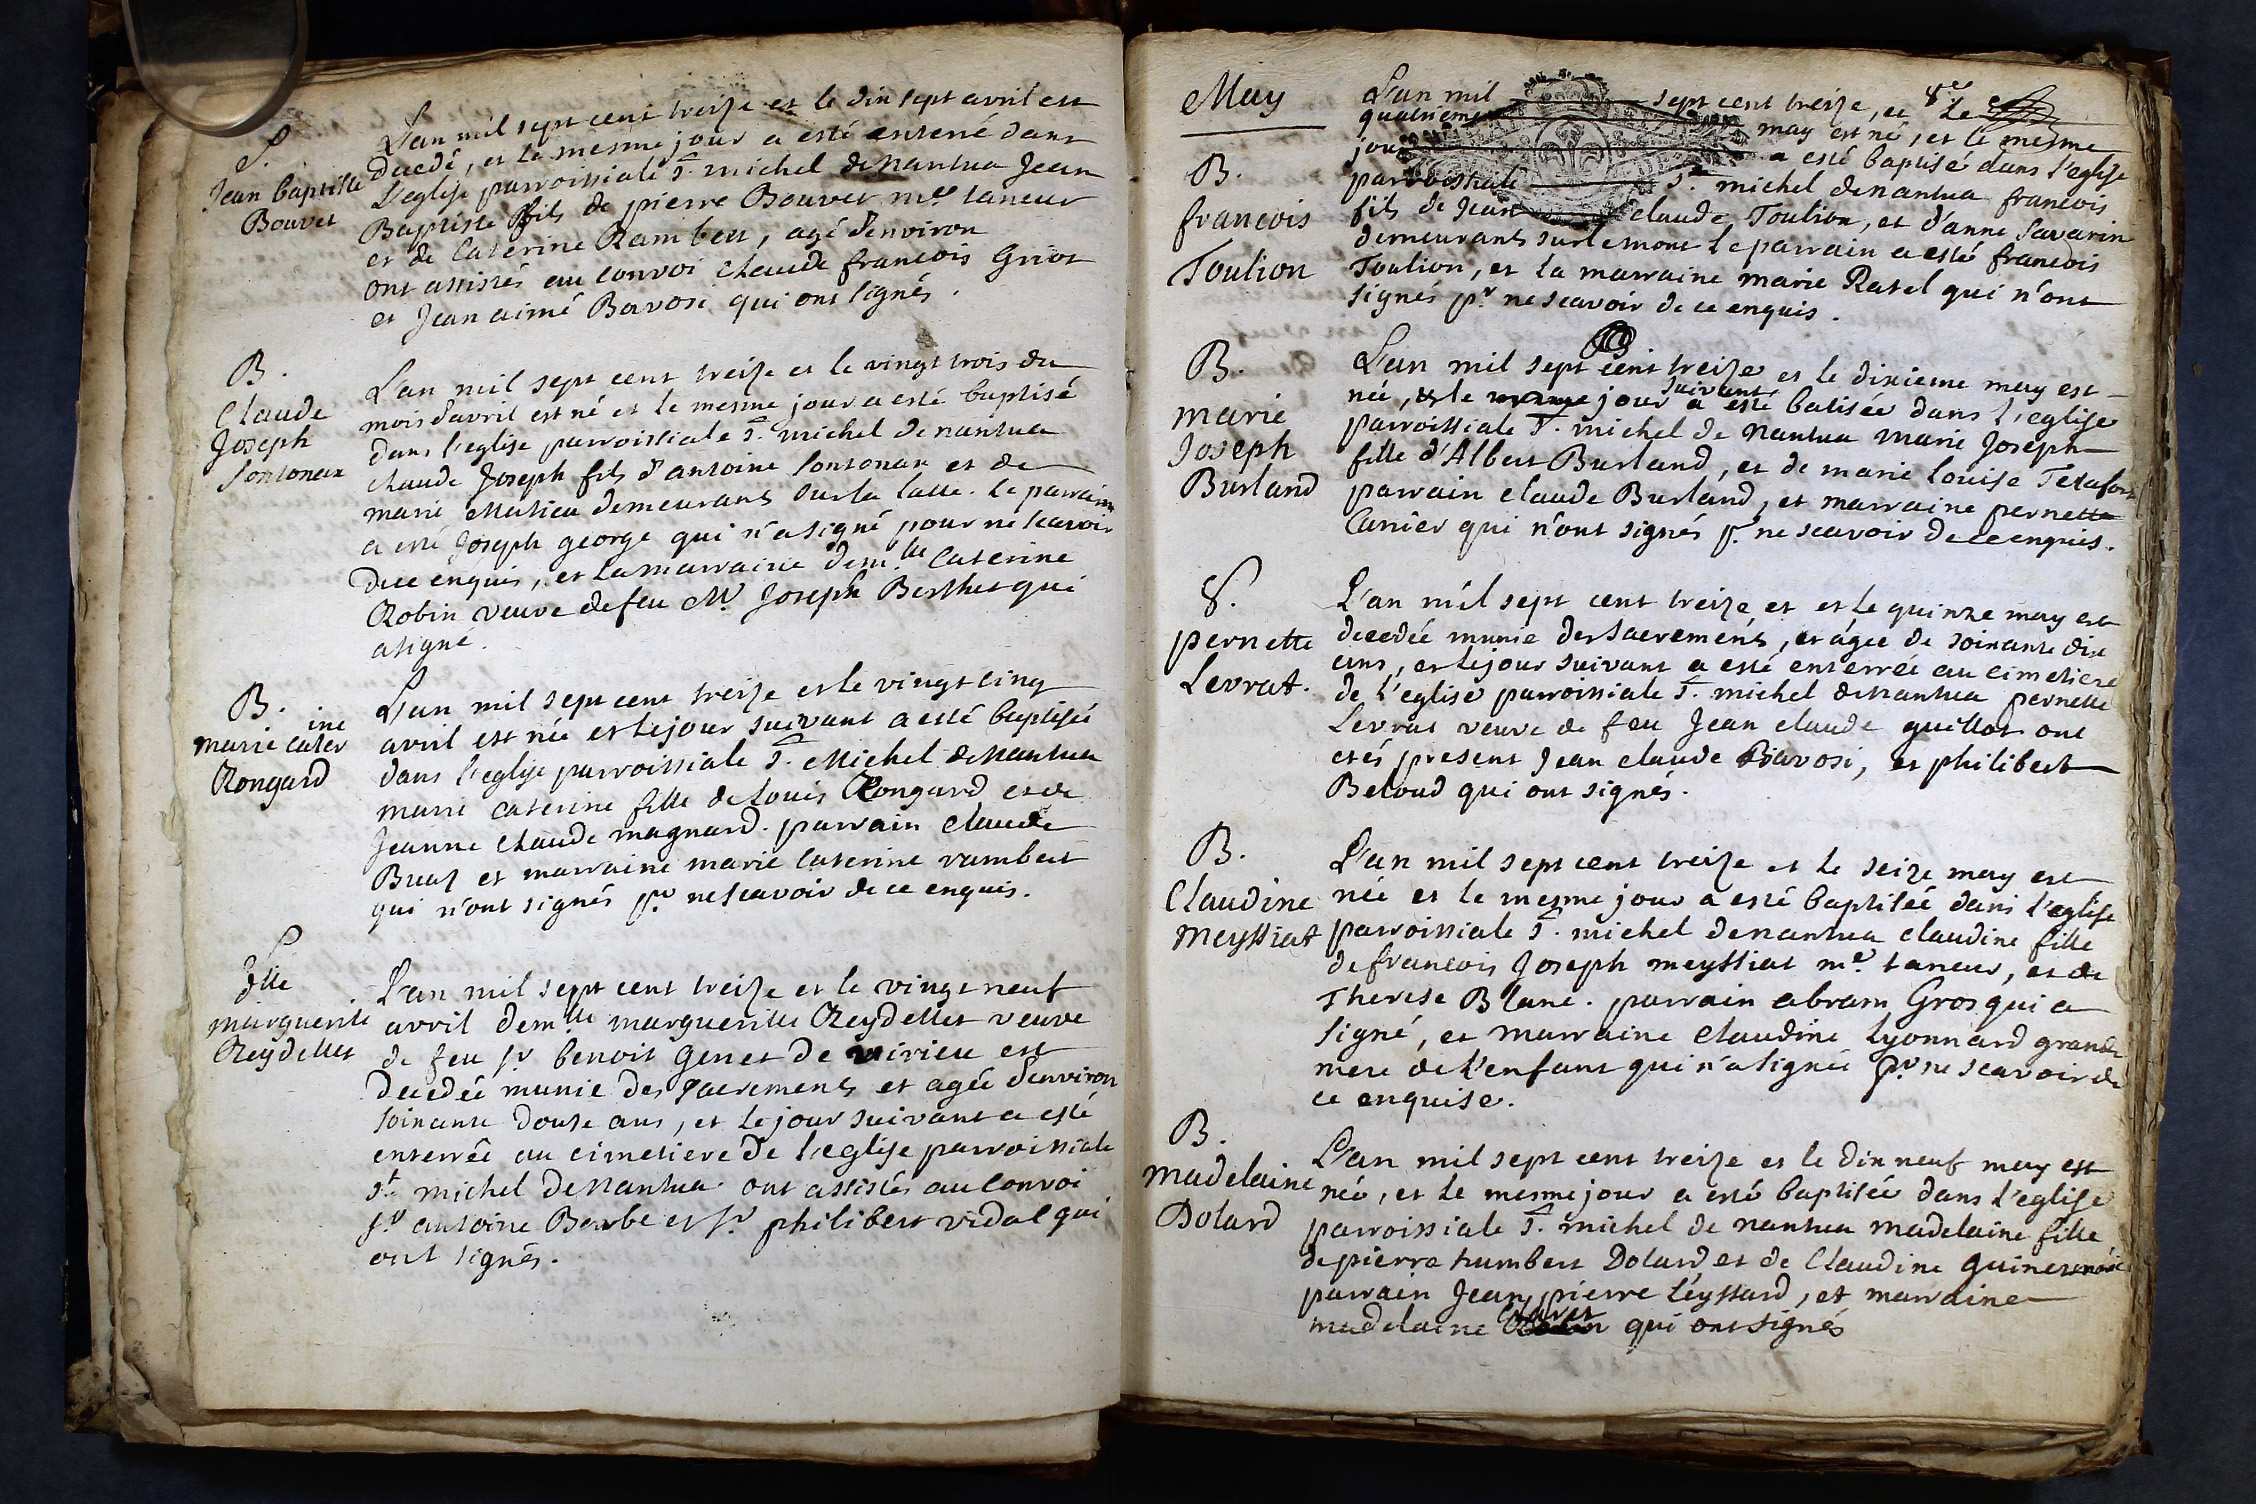 S.
Jean baptiste
Bouvet
L'an mil sept cent treize et le dix sept avril est
decedé, et le mesme jour a esté enterré dans
L'eglise parroissiale St. michel de nantua Jean
Baptiste fils de pierre Bouvet me. taneur
et de Caterine Rambert, agé d'environ
ont assistés au convoi Claude francois Griot
et Jean aimé Bavosi qui ont signés.
B.
Claude
Joseph
Sontonax
L'an mil sept cent treize et le vingt trois du
mois d'avril est né et le mesme jour a esté baptisé
dans l'eglise parroissiale St. michel de nantua
claude Joseph fils d'antoine Sontonax et de
marie Matieu demeurants sur la latte. Le parrain
a esté Joseph george qui n'a signé pour ne scavoir
de ce enquis, et la marraine demlle Caterine
Robin veuve de feu Mr Joseph Berthet qui
a signé.
B.
marie caterine
Rongard
L'an mil sept cent treize et le vingt cinq
avril est née et le jour suivant a esté baptisée
dans l'eglise parroissiale St. Michel de Nantua
marie caterine fille de louis Rongard et de
Jeanne claude magnard. parrain claude
Breaz et marraine marie Caterine rambert
qui n'ont signés pr ne scavoir de ce enquis.
S
Dlle
marguerite
Reydellet
L'an mil sept cent treize et le vingt neuf
avril demlle marguerite Reydellet veuve
de feu sr benoit Genet de virieu est
decedée munie des sacrements et agée d'environ
soixante douse ans, et le jour suivant a esté
enterrée au cimetiere de l'eglise parroissiale
st michel de nantua. ont assistés au convoi
sr antoine Barbe et sr. philibert vidal qui
ont signés.
May
B.
francois
Toulion
L'an mil sept cent treize, et le
quatrieme may est né, et le mesme
jour a esté baptisé dans l'eglise
parroissiale St. michel de nantua francois
fils de Jean claude Toulion, et d'anne Savarin
demeurants sur le mont le parrain a esté francois
Toulion, et la marraine marie Ratel qui n'ont
signés pr ne scavoir de ce enquis.
B.
marie
Joseph
Burland
L'an mil sept cent treize et le dixieme may est
née, et le jour suivant a esté batisée dans l'eglise
parroissiale St. michel de nantua marie Joseph
fille d'Albert Burland, et de marie louise Tetafort
parrain claude Burland, et marraine pernette
Canier qui n'ont signés pr. ne scavoir de ce enquis.
S.
pernette
Levrat.
L'an mil sept cent treize et et le quinze may est
decedée munie des sacrements, et agée de soixante dix
ans, et le jour suivant a esté enterrée au cimetiere
de l'eglise parroissiale St. michel de nantua pernette
Levrat veuve de feu Jean claude guillot ont
etés present Jean claude Bavosi, et philibert
Beloud qui ont signés.
B.
Claudine
Meyssiat
L'an mil sept cent treize et le seize may est
née et le mesme jour a esté baptisée dans l'eglise
parroissiale St. michel de nantua claudine fille
de francois Joseph meyssiat me. taneur, et de
Therese Blanc. parrain abram Gros qui a
signé, et marraine claudine Lyonnard grande
mere de l'enfant qui n'a signée pr ne scavoir de
ce enquise.
B.
Madelaine
Dolard
L'an mil sept cent treize et le dix neuf may est
née, et le mesme jour a esté baptisée dans l'eglise
parroissiale St. michel de nantua madelaine fille
de pierre humbert Dolard et de Claudine
parrain Jean pierre Leyssard, et marraine
madelaine qui ont signés